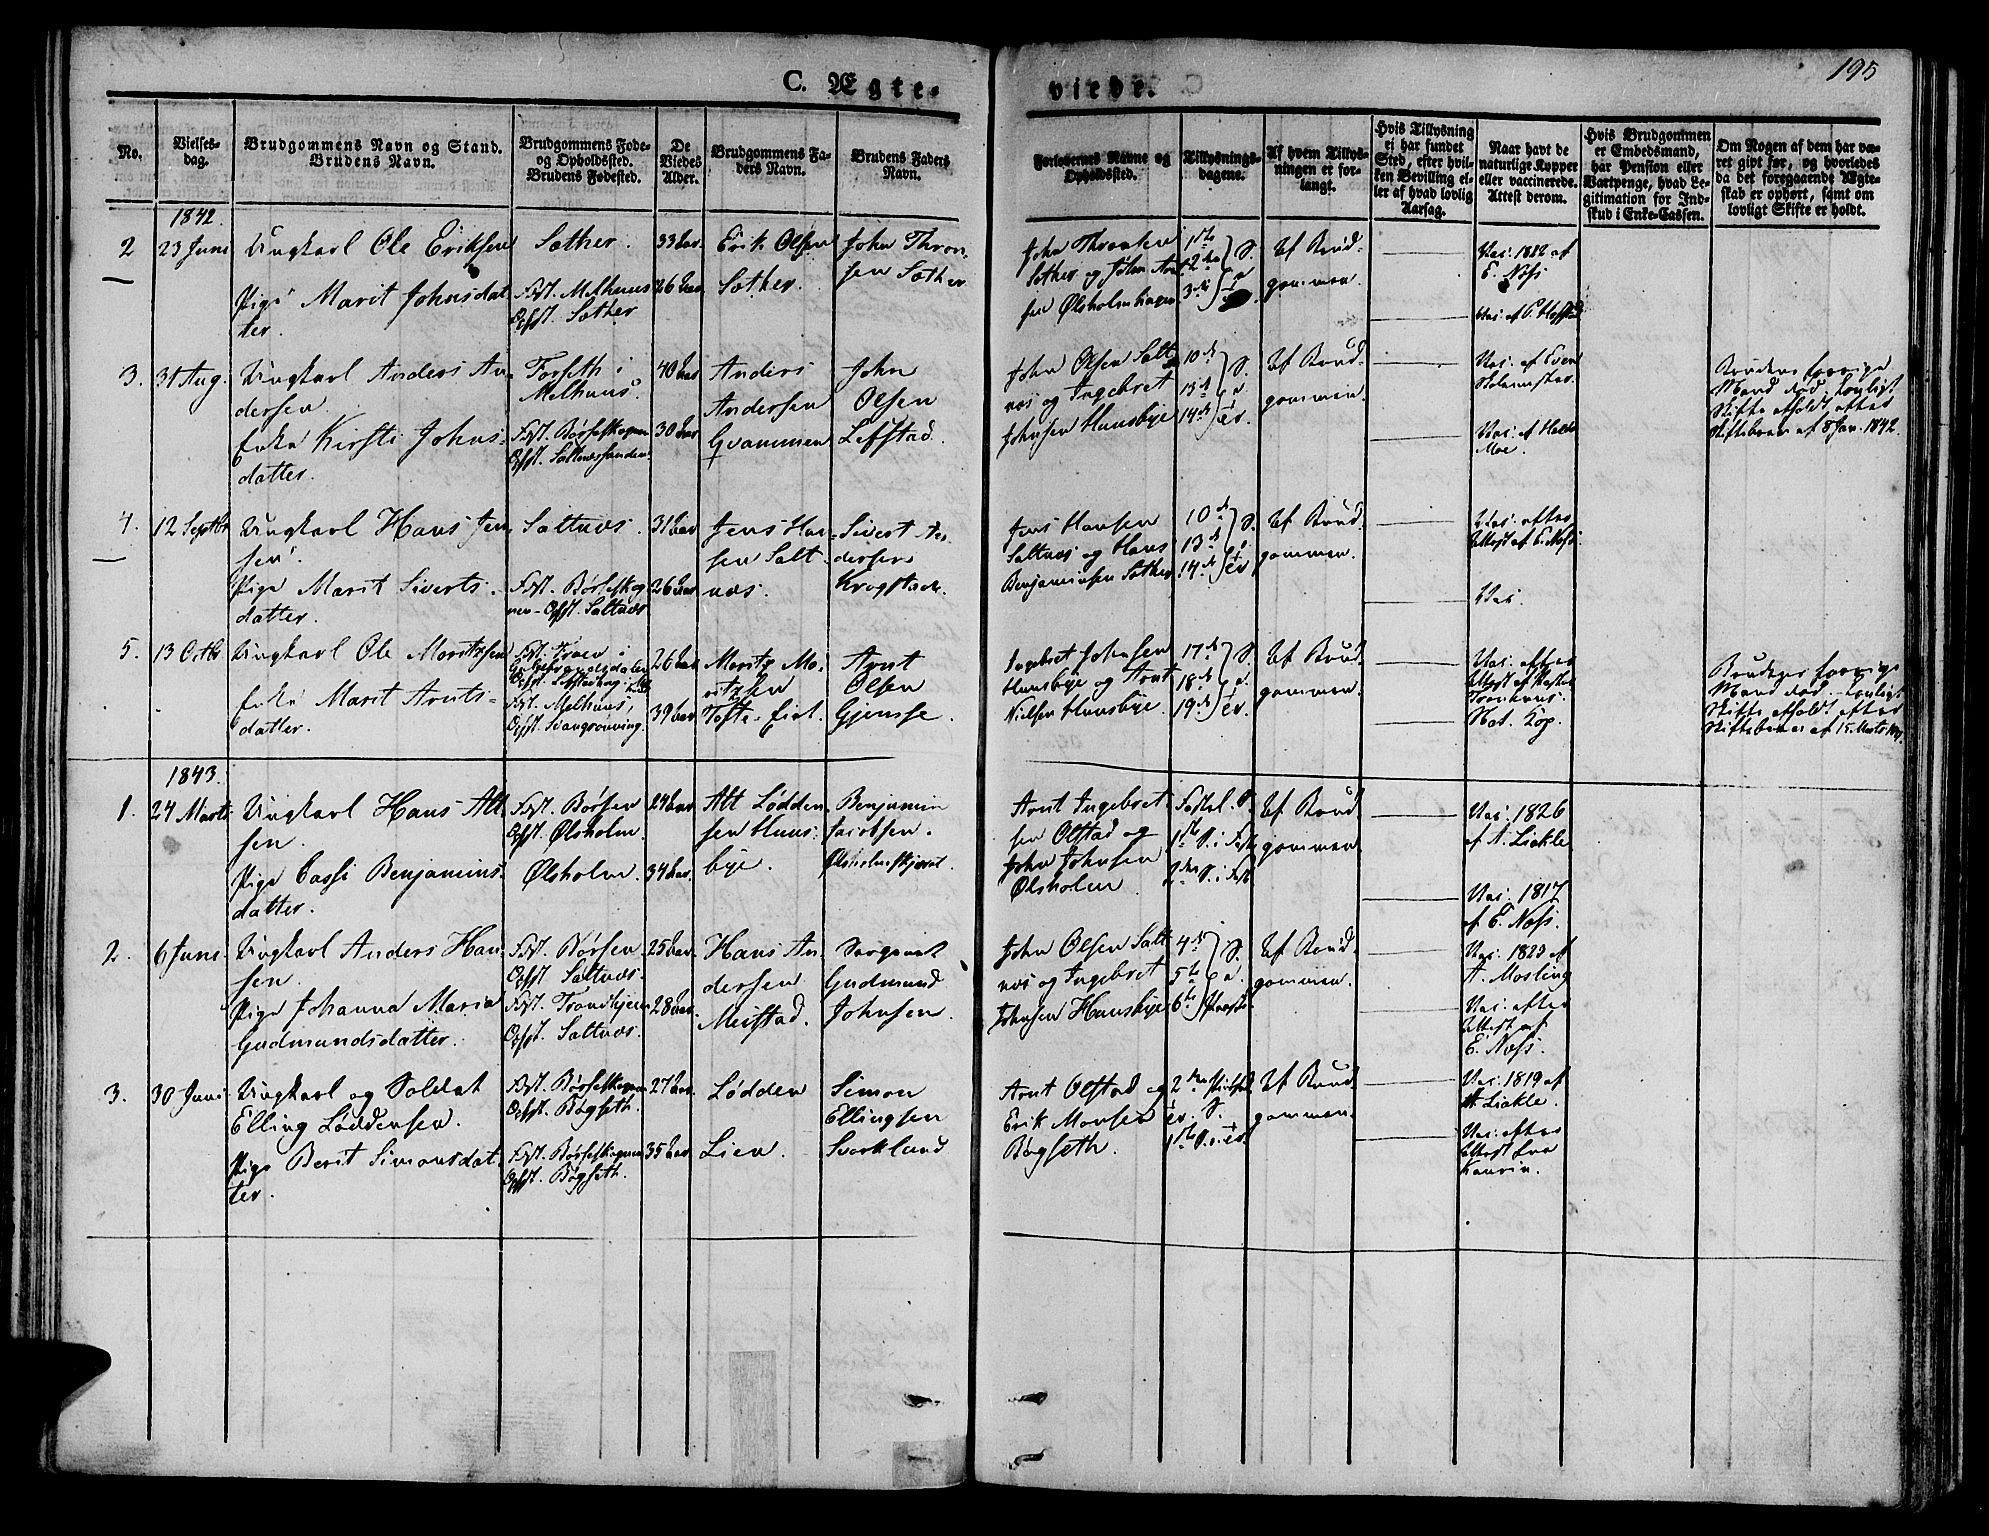 C. Ægte-
viede.
195
No.
Vielses-
dag.
Brudgommens Navn og Stand.
Brudens Navn.
Brudgommens Føde-
og Opholdssted.
Brudens Fødested.
De
Viedes
Alder.
Brudgommens Fa-
ders Navn.
Brudens Faders
Navn.
Forlovernes Navne og
Opholdssted.
Tillysnings-
dagene.
Af hvem Tillys-
ningen er for-
langt.
Hvis Tillysning
ei har fundet
Sted, efter hvil-
ken Bevilling el-
ler af hvad lovlig
Aarsag.
Naar havt de
naturlige Kopper
eller vaccinerede.
Attest derom.
Hvis Brudgommen
er Embedsmand,
har Pension eller
Vartpenge, hvad Le-
gitimation for Ind-
skud i Enke-Cassen.
Om Nogen af dem har væ-
ret givt før, og hvorledes
da det foregaaende Ægte-
skab er ophørt, samt om
lovligt Skifte er holdt.
1842.
2
23 Juni
Ungkarl Ole Eriksen
Pige Marit Johnsdat-
ter.
Sæther.
Fst. Melhuus
Opst. Sæther
33 Aar.
26 Aar.
Erik Olsen
Sæther.
John Thron-
sen Sæther
John Thronsen
Sæther og John Arnt-
sen Ølsholmhagen
1ste
2den
3die
S.
Af Brud-
gommen.
Vac. 1812 af
E. Næss
Vac. af
3.
31 Aug.
Ungkarl Anders An-
dersen.
Enke Kirsti Johns-
datter.
Forseth i
Melhuus.
Fst. Børseskognen
Opst. Saltnæssanden.
40 Aar
30 Aar
Anders
Andersen
Gvammen
John
Olsen
Lefstad.
John Olsen Salt-
næs og Ingebret
Johnsen Huusbye
10de
13de
14de
S.
e.
Tr.
Af Brud-
gommen.
Vac. af Even
Holemster.
Vac. af
Moe.
Brudens forrige
Mand død. Lovligt
Skifte afholdt efter
Skiftebrev af 8 Jan. 1842.
4.
12 Septbr
Ungkarl Hans Jen-
sen.
Pige Marit Siverts-
datter.
Saltnæs.
Fst. Børseskog-
nen - Opst. Saltnæs
31 Aar
26 Aar
Jens Han-
sen Salt-
næs.
Sivert An-
dersen
Krogstad.
Jens Hansen
Saltnæs og Hans
Benjaminsen Sæther
10de
13de
14de
S.
e.
Tr.
Af Brud-
gommen.
Vac. efter
Attest af E. Næss.
Vac.
5.
13 Octbr
Ungkarl Ole Moritzsen
Enke Marit Arnts-
datter.
Fst. Froen i
Gulbrandsdalen
Fst. Melhuus,
Opst. Svangrønning.
26 Aar
39 Aar
Moritz Mo-
ritzsen
Tofte-Eiet.
Arnt
Olsen
Gjemse.
Ingebret Johnsen
Huusbye og Arnt
Nielsen Huusbye.
17de
18de
19de
S.
e.
Tr.
Af Brud-
gommen.
Vac. efter
Attest af
Nat. Kop.
Brudens forrige
Mand død. - Lovligt
Skifte afholdt efter
Skiftebrev af 15 Marts
1843.
1.
24 Marts
Ungkarl Hans Alt-
sen.
Pige Cassi Benjamins-
datter.
Fst. Børsen
Opst. Ølsholm.
Ølsholm.
24 Aar
34 Aar.
Alt Lødden-
sen Huus-
bye.
Benjamin
Jacobsen.
Arnt Ingebret-
sen Olstad og
John Johnsen
Ølsholm.
Fastel. S.
1ste S. i Faste
2den S. i Fast
Af Brud-
gommen
Vac. 1826
af A. Liakle
Vac. 1817
af E. Næss.
2.
6 Juni
Ungkarl Anders Han-
sen.
Pige Johanna Maria
Gudmundsdatter.
Fst. Børsen
Opst. Saltnæs.
Fst. Trondhjem
Opst. Saltnæs.
25 Aar.
28 Aar.
Hans An-
dersen
Meistad.
Sergeant
Gudmund
Johnsen.
John Olsen Salt-
næs og Ingebret
Johnsen Huusbye
4de
5te
6te
S.
e.
Paaske
Af Brud-
gommen.
Vac. 1823 af
A. Mosling
Vac. efter
Attest af
E. Næss.
3.
30 Juni
Ungkarl og Soldat
Elling Loddensen.
Pige Berit Simonsdat-
ter.
Fst. Børseskognen
Opst. Bøgseth.
Fst. Børseskognen
Opst. Bøgseth.
27 Aar.
35 Aar.
Lødden
Lien.
Simon
Ellingsen
Svorkland
Arnt Olstad og
Erik Monsen
Bøgseth.
2den Pintsed.
Tr. S.
1ste S. e. Tr.
Af Brud-
gommen.
Vac. 1819 af
A. Liakle.
Vac. efter
Attest fra
Kaurin.